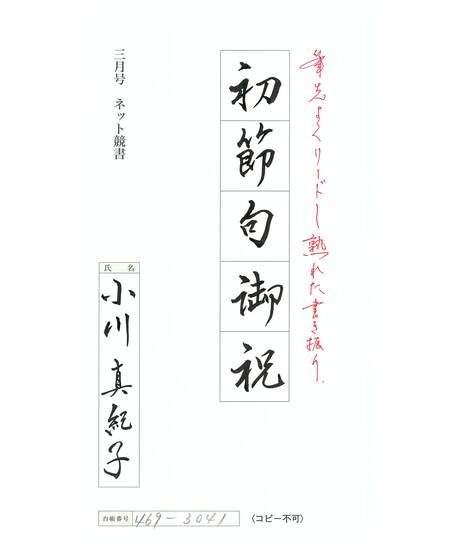 筆先よくリードし熟れた書き振り.
初節句御祝
三月号 ネット競書
氏名
小川 真紀子
台帳番号 469-3041
〈コピー不可〉